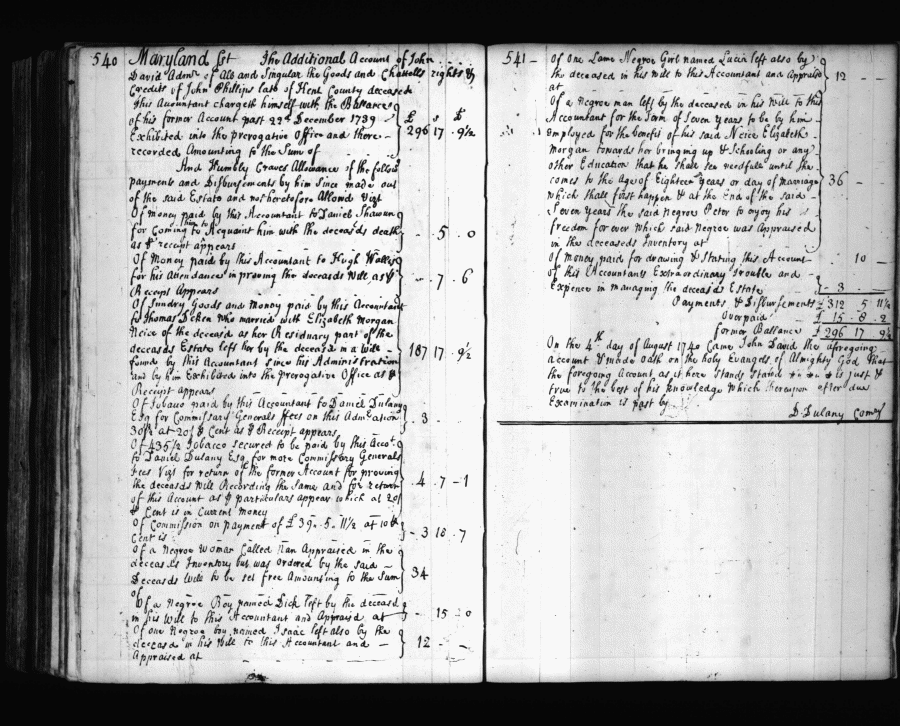 540 Maryland Sct The Additional Account of John
David Admr of All and Singular the Goods and Chattells rights &
Credits of John Phillips late of Kent County deceased
This Accountant chargeth himself with the Ballance
of his former Account past 22d December 1739 £ s d
Exhibited into the prerogative Office and there 296 17 9½
recorded Amounting to the Sum of
And Humbly Craves Allowance of the follow
payments and Disbursements by him Since made out
of the said Estate and not heretofore Allowd Vizt
Of money paid by this Accountant to Daniel
for Coming to Acquaint him with the deceaseds death - 5 . 0
as receipt appears
Of Money paid by this Accountant to Hugh Wallis
for his Attendance in proving the deceaseds Will as - 7 . 6
Receipt Appears
Of Sundry Goods and Money paid by this Accountant
to Thomas who married with Elizabeth Morgan
Neice of the deceasd as her Residuary part of the
deceaseds Estate left her by the deceasd in a Will 187 17 9½
found by this Accountant since his Administration
and by him Exhibited into the Prerogative Office as
Receipt appears
Of Tobacco paid by this Accountant to Daniel Dulany
Esqr for Commissary Generals ffees on this Admration 3
at 20s Cent as Receipt appears
Of 435½ Tobacco secured to be paid by this Accot
to Daniel Dulany Esq for more Commissary Generals
ffees Vizt for return of the former Account for proving
the deceaseds Will Recording the Same and for return 4 . 7 - 1
of this Account as particulars appear which at 20s
Cent is in Current Money
Of Commission on payment of £39 . 5 . 11½ at 10
Cent is - 3 18 . 7
Of a Negroe Woman Called Nan Appraised in the
deceaseds Inventory but was ordered by the said
Deceaseds Will to be set free Amounting to the Sum 34
of
Of a Negroe Boy named Dick left by the deceased
in his Will to this Accountant and Appraised at - 15 - 0
Of one Negroe boy named Isaac left also by the
deceasd in his Will to this Accountant and 12 - -
Appraised at
541 Of one Lame Negroe Girl named Lucia left also by
the deceased in his Will to this Accountant and Appraised 12 - -
at
Of a Negroe man left by the deceased in his Will to this
Accountant for the Term of Seven years to be by him
employed for the benefit of his said Neice Elizabeth
Morgan towards her bringing up & Schooling or any
other Education that he shall see needfull until she
comes to the Age of Eighteen years or day of marriage 36 -
which shall first happen & at the End of the said
Seven years the said Negroe Peter to enjoy his
freedom for ever which said Negroe was Appraised
in the deceaseds Inventory at
Of money paid for drawing & Stating this Account 10 -
Of this Accountants Extraordinary Trouble and
Expence in managing the deceasds Estate 3
Payments & Disbursements £ 312 5 11½
Overpaid £ 15 . 8 . 2
former Ballance £ 296 17 9½
On the 4th day of August 1740 Came John David the aforegoing
account & made Oath on the holy Evangels of Almighty God that
the foregoing Account, as it here Stands Stated is just &
true to the best of his knowledge which thereupon after due
Examination is past by
D. Dulany Comry